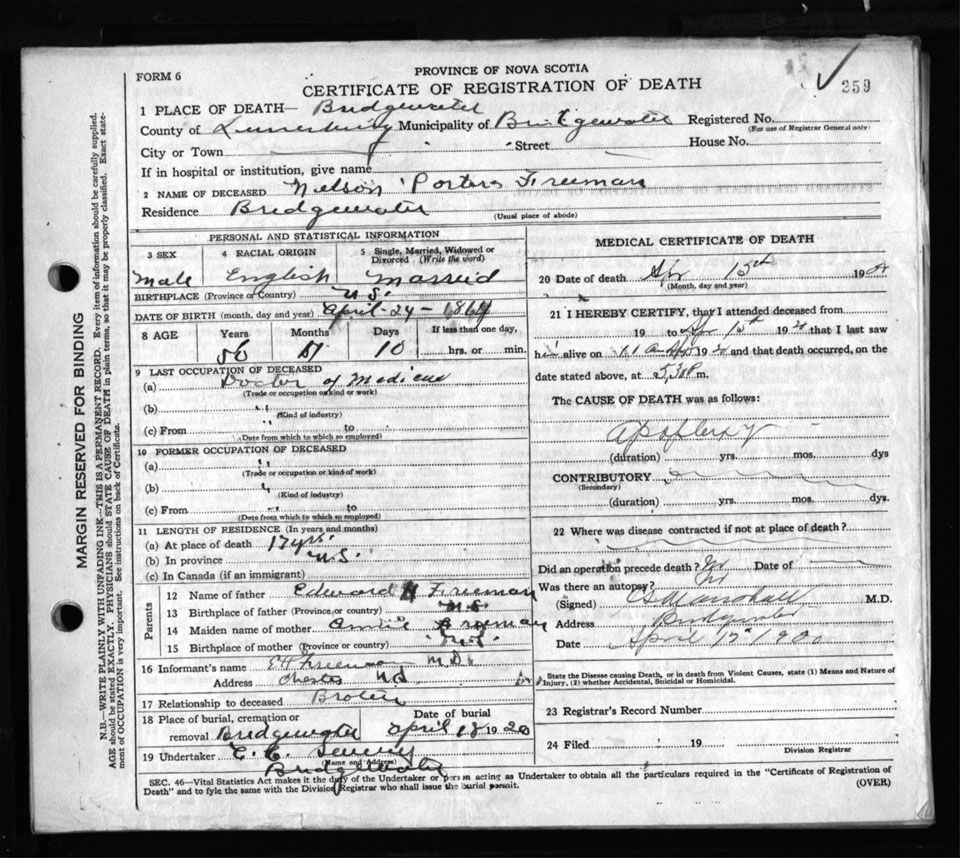 FORM 6
PROVINCE OF NOVA SCOTIA
CERTIFICATE OF REGISTRATION OF DEATH
259
1 PLACE OF DEATH— Bridgewater
County of Lunenburg Municipality of Bridgewater Registered No.
(For use of Registrar General only)
City or Town Street House No.
If in hospital or institution, give name
2 NAME OF DECEASED Nelson Porter Freeman
Residence Bridgewater
(Usual place of abode)
PERSONAL AND STATISTICAL INFORMATION
3 SEX 4 RACIAL ORIGIN 5 Single, Married, Widowed or Divorced (Write the word)
Male English Married
BIRTHPLACE (Province or Country) N.S.
DATE OF BIRTH (month, day and year) April-24-1864
8 AGE Years Months Days If less than one day,
10 hrs. or min.
9 LAST OCCUPATION OF DECEASED
(a) Doctor of Medicine
(Trade or occupation or kind or work)
(b) "
(Kind of industry)
(c) From " to
(Date from which to which so employed)
10 FORMER OCCUPATION OF DECEASED
(a) "
(Trade or occupation or kind of work)
(b) "
(Kind of industry)
(c) From to
(Date from which to which so employed)
11 LENGTH OF RESIDENCE (In years and months)
(a) At place of death 17 yrs.
(b) In province N.S.
(c) In Canada (if an immigrant)
Parents
12 Name of father Edward H Freeman
13 Birthplace of father (Province or country) N.S.
14 Maiden name of mother Freeman
15 Birthplace of mother (Province or country) N.S.
16 Informant's name E H Freeman M.D.
Address Chester N.S.
17 Relationship to deceased Brother
18 Place of burial, cremation or removal Bridgewater Date of burial April 18 1920
19 Undertaker E. C.
(Name and Address)
Bridgewater
SEC. 46—Vital Statistics Act makes it the duty of the Undertaker or person acting as Undertaker to obtain all the particulars required in the "Certificate of Registration of
Death" and to fyle the same with the Division Registrar who shall issue the burial permit.
(OVER)
MEDICAL CERTIFICATE OF DEATH
20 Date of death Apr 15th 19
(Month, day and year)
21 I HEREBY CERTIFY, that I attended deceased from
19 to Apr 15th 1920 that I last saw
h alive on 1920 and that death occurred, on the
date stated above, at 5.30 P m.
The CAUSE OF DEATH was as follows:
Apoplexy
(duration) yrs. mos. dys
CONTRIBUTORY
(Secondary)
(duration) yrs. mos. dys.
22 Where was disease contracted if not at place of death?
Did an operation precede death? No Date of
Was there an autopsy? No
(Signed) Marshall M.D.
Address Bridgewater
Date April
State the Disease causing Death, or in death from Violent Causes, state (1) Means and Nature of
Injury, (2) whether Accidental, Suicidal or Homicidal.
23 Registrar's Record Number
24 Filed 19
Division Registrar
MARGIN RESERVED FOR BINDING
N.B.—WRITE PLAINLY, WITH UNFADING INK—THIS IS A PERMANENT RECORD. Every item of information should be carefully supplied.
AGE should be stated EXACTLY. PHYSICIANS should STATE CAUSE OF DEATH in plain terms, so that it may be properly classified. Exact statement of OCCUPATION is very important. See instructions on back of Certificate.